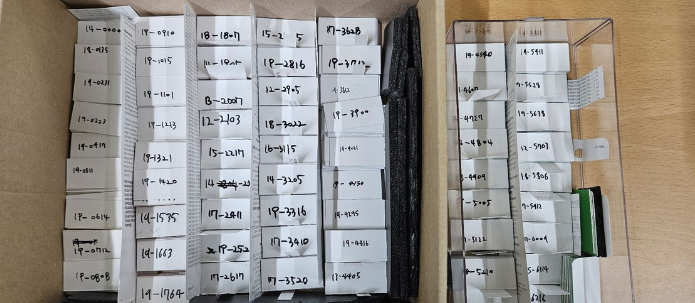 14-0000
18-0135
19-0211
19-0323
19-0419
19-0511
19-0614
19-0712
19-0808
19-0910
19-1015
19-1101
19-1213
19-1321
19-1420
19-1535
19-1663
19-1764
18-1807
13-2007
12-2103
15-2217
17-2411
19-252
17-2617
19-2816
12-2905
18-3022
16-3115
14-3205
19-3316
17-3410
17-3520
17-3628
19-3900
19-4021
19-4150
19-4295
19-4316
17-4405
19-4540
-4607
-4727
-4804
-4909
-5005
-5122
-5210
19-5411
9-5528
19-5638
12-5703
18-5806
9-5912
9-6004
5-6114
6216